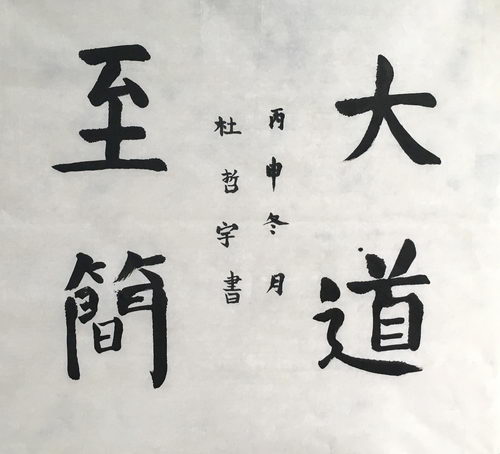 大道
丙申冬月
杜哲宇書
至簡